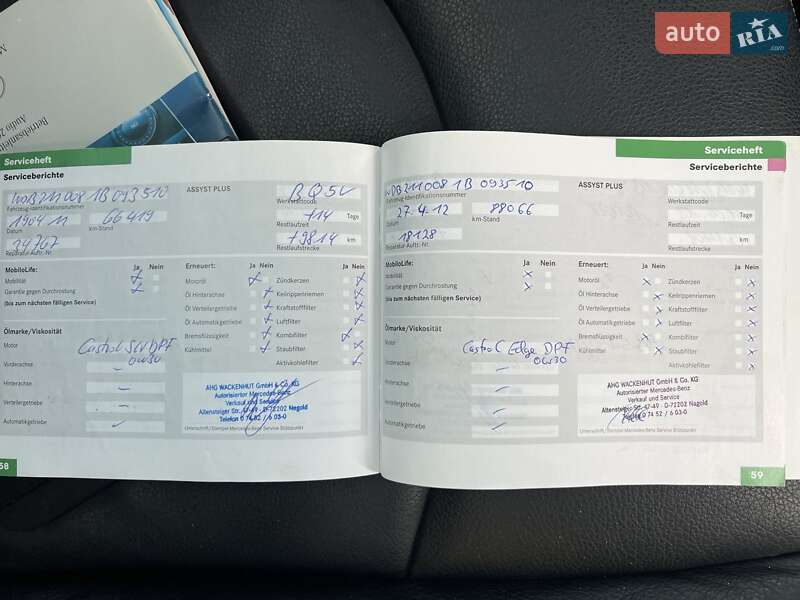 auto RIA .com
Betriebsanleitung
Audio 20
Serviceheft
Serviceberichte
WDB211008 1B 093510
Fahrzeug-Identifikationsnummer
1904 11
66419
Datum
km-Stand
34767
Reparatur-Auftr.-Nr.
ASSYST PLUS
BQ5V
Werkstattcode
+14 Tage
Restlaufzeit
+9814 km
Restlaufstrecke
MobiloLife:
Ja Nein
Mobilität
Garantie gegen Durchrostung
(bis zum nächsten fälligen Service)
Erneuert:
Ja Nein
Ja Nein
Motoröl
Zündkerzen
Öl Hinterachse
Keilrippenriemen
Öl Verteilergetriebe
Kraftstofffilter
Öl Automatikgetriebe
Luftfilter
Bremsflüssigkeit
Kombifilter
Kühlmittel
Staubfilter
Aktivkohlefilter
Ölmarke/Viskosität
Motor
Castrol SLV DPF
0W30
Vorderachse
Hinterachse
Verteilergetriebe
Automatikgetriebe
AHG WACKENHUT GmbH & Co. KG
Autorisierter Mercedes-Benz
Verkauf und Service
Altensteiger Str. 47-49 · D-72202 Nagold
Telefon 0 74 52 / 6 03-0
Unterschrift/Stempel Mercedes-Benz Service Stützpunkt
58
Serviceheft
Serviceberichte
WDB211008 1B 093510
Fahrzeug-Identifikationsnummer
27.4.12
88066
Datum
km-Stand
18128
Reparatur-Auftr.-Nr.
ASSYST PLUS
Werkstattcode
Tage
Restlaufzeit
km
Restlaufstrecke
MobiloLife:
Ja Nein
Mobilität
Garantie gegen Durchrostung
(bis zum nächsten fälligen Service)
Erneuert:
Ja Nein
Ja Nein
Motoröl
Zündkerzen
Öl Hinterachse
Keilrippenriemen
Öl Verteilergetriebe
Kraftstofffilter
Öl Automatikgetriebe
Luftfilter
Bremsflüssigkeit
Kombifilter
Kühlmittel
Staubfilter
Aktivkohlefilter
Ölmarke/Viskosität
Motor
Castrol Edge DPF
0W30
Vorderachse
Hinterachse
Verteilergetriebe
Automatikgetriebe
AHG WACKENHUT GmbH & Co. KG
Autorisierter Mercedes-Benz
Verkauf und Service
Altensteiger Str. 47-49 · D-72202 Nagold
Telefon 0 74 52 / 6 03-0
Unterschrift/Stempel Mercedes-Benz Service Stützpunkt
59